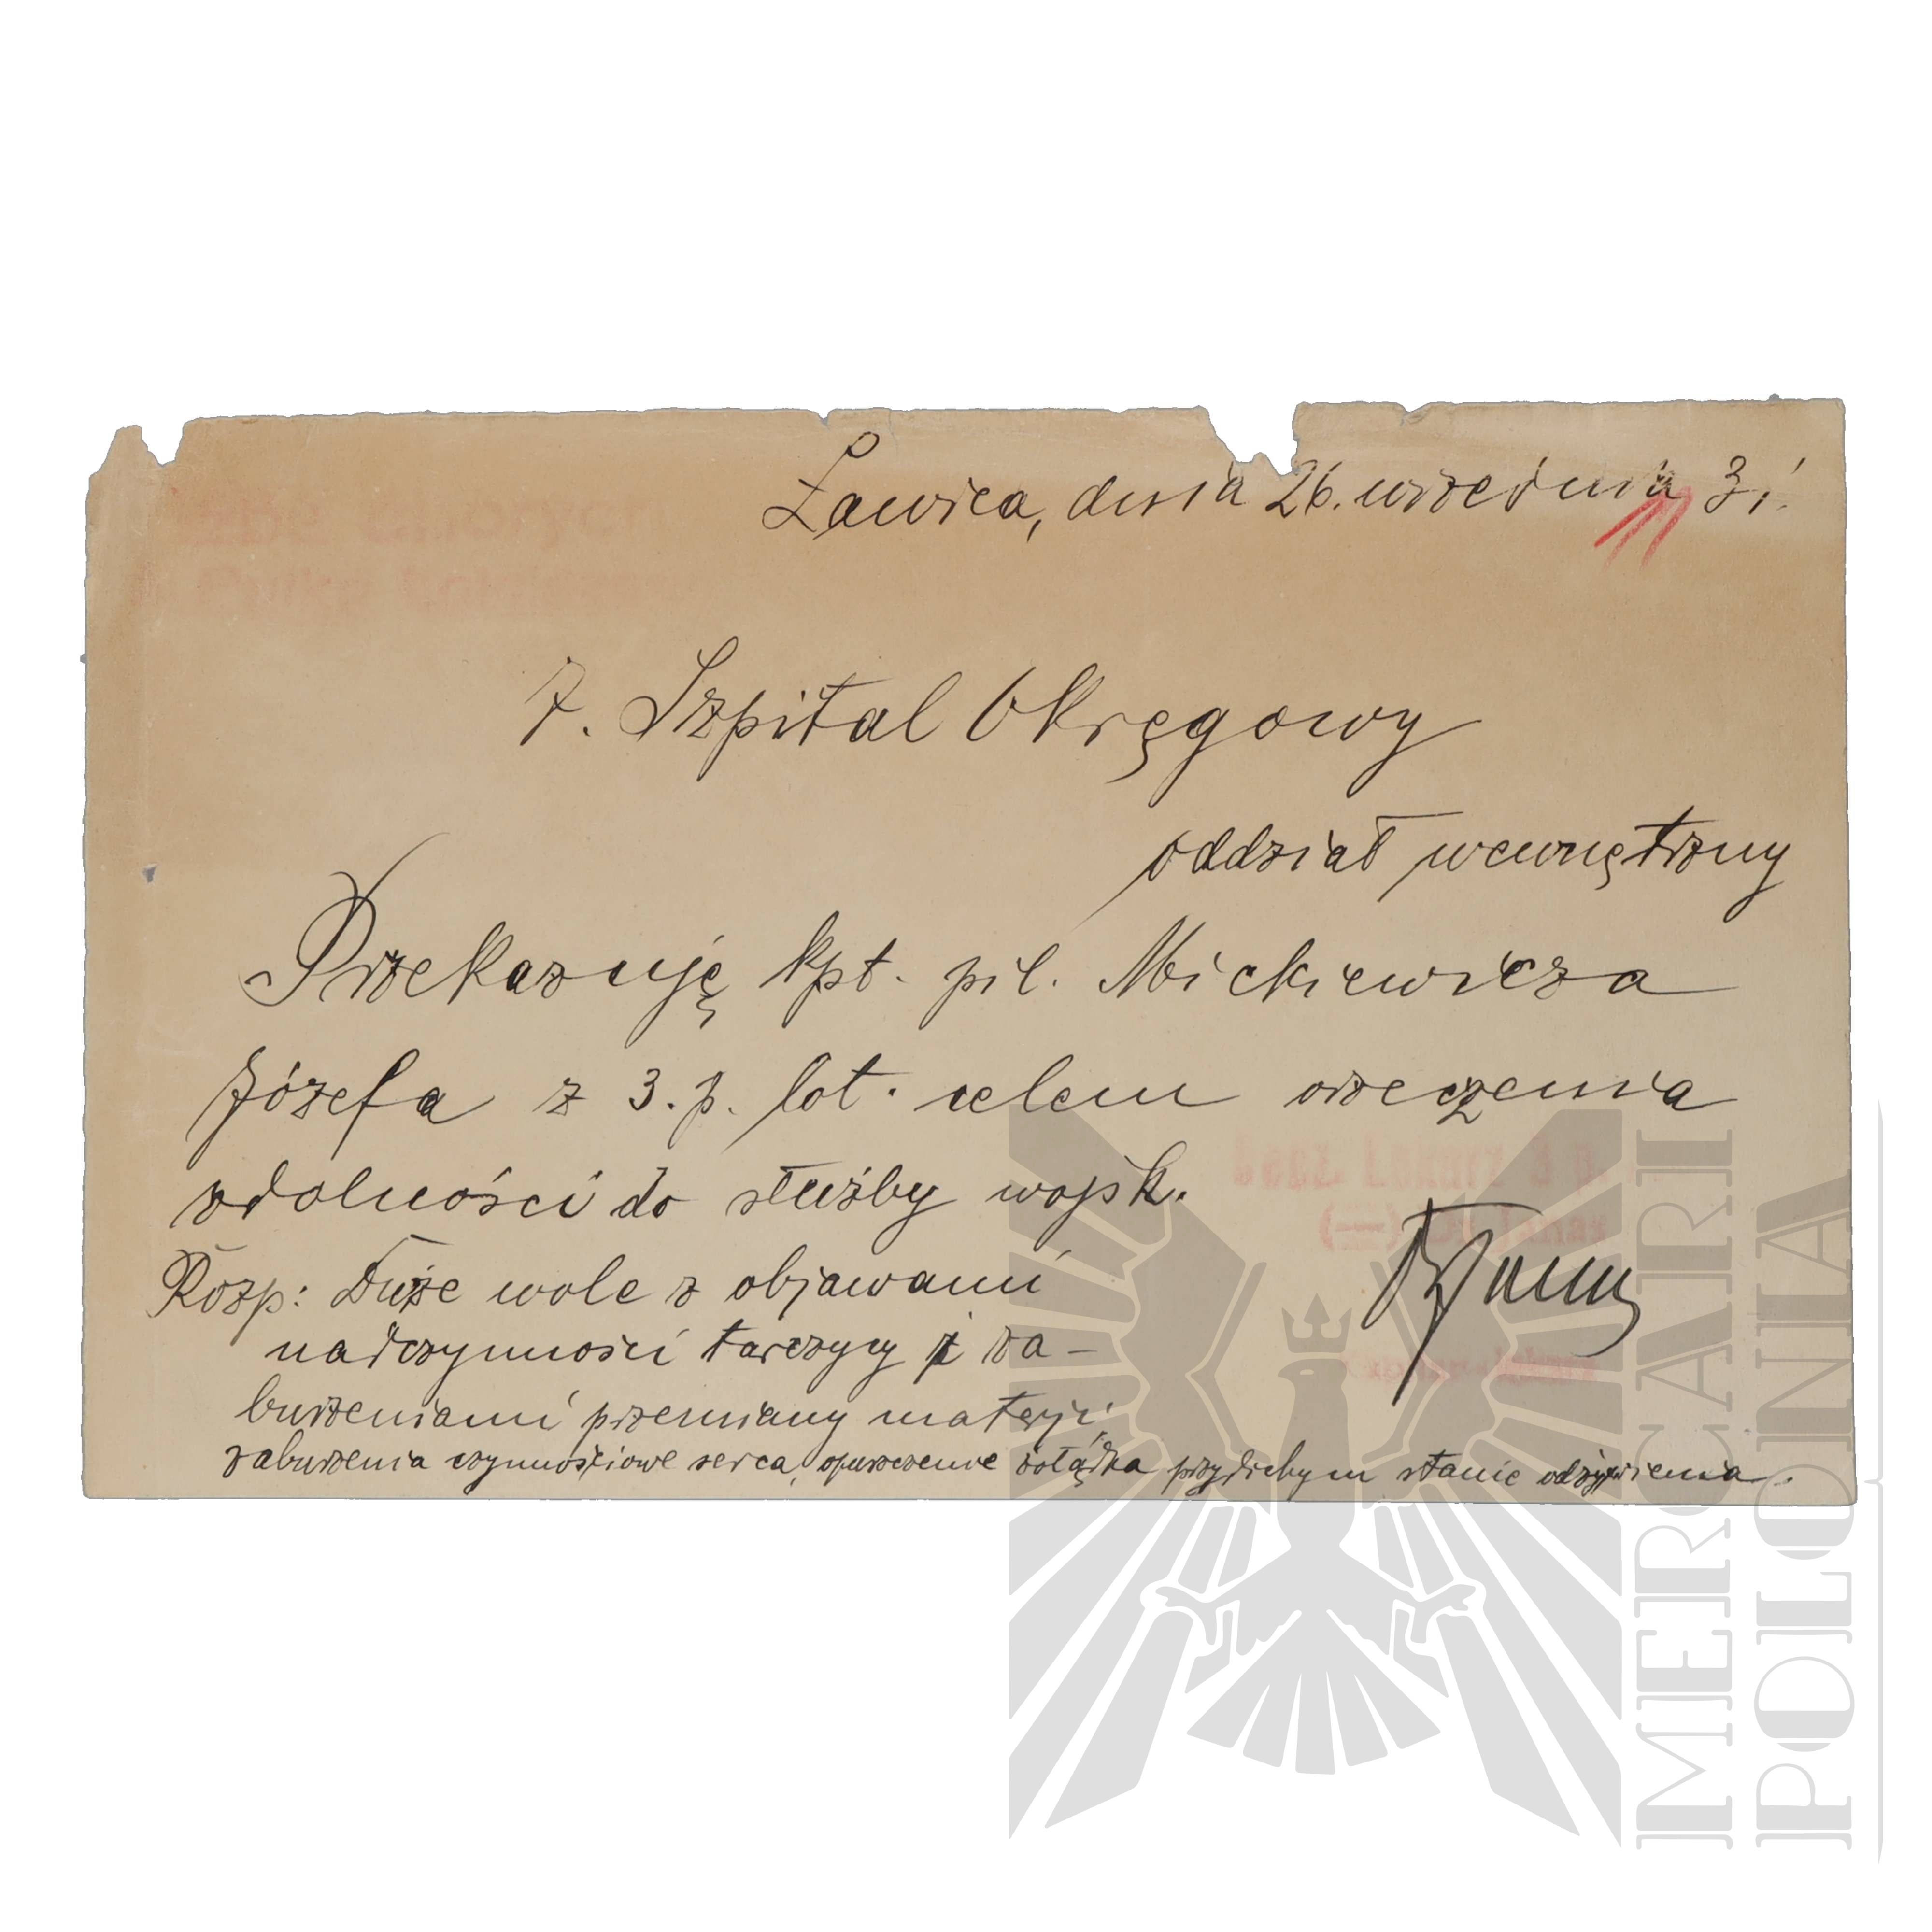 Ławica, dnia 26. września 31.
7. Szpital Okręgowy
oddział wewnętrzny
Przekazuję kpt. pil. Mickiewicza
Józefa z 3. p. lot. celem orzeczenia
zdolności do służby wojsk.
Rozp: Duże wole z objawami
nadczynności tarczycy i za-
burzeniami przemiany materji,
zaburzenia czynnościowe serca, opuszczenie żołądka przy lichym stanie odżywienia.
Lekarz 3 p.
IMERCARI
POLONIA